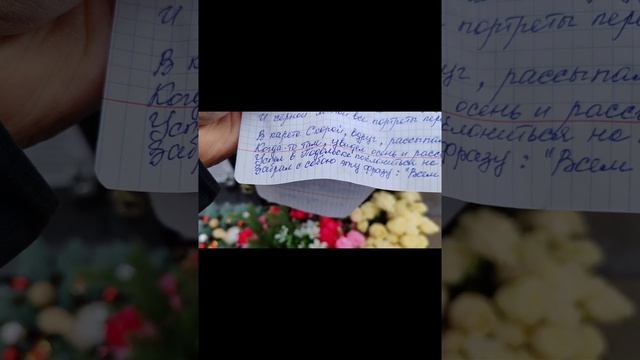 И черной все портреты пере
В карете Скорой, вдруг, рассыпал
Когда-то там, увидя осень и расс
Успел в Подольске поклониться не
Забрал с собою эту фразу: "Всем